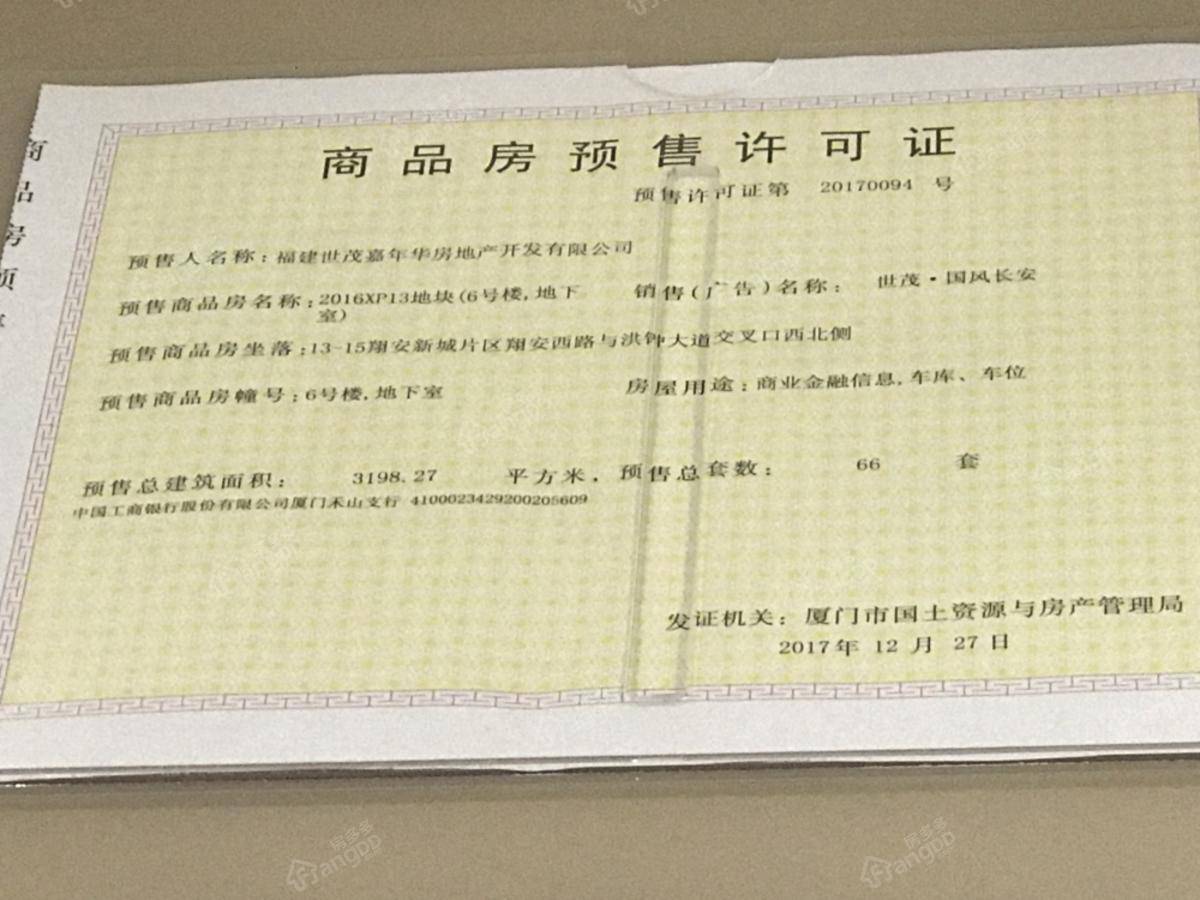 商品房预售许可证
预售许可证第 20170094 号
预售人名称：福建世茂嘉年华房地产开发有限公司
预售商品房名称：2016XP13地块(6号楼,地下室) 销售(广告)名称： 世茂·国风长安
预售商品房坐落：13-15翔安新城片区翔安西路与洪钟大道交叉口西北侧
预售商品房幢号：6号楼,地下室 房屋用途：商业金融信息,车库、车位
预售总建筑面积： 3198.27 平方米，预售总套数： 66 套
中国工商银行股份有限公司厦门禾山支行 4100023429200205609
发证机关：厦门市国土资源与房产管理局
2017年 12 月 27 日
商品房预
房多多
fangdd
房多多
fangdd